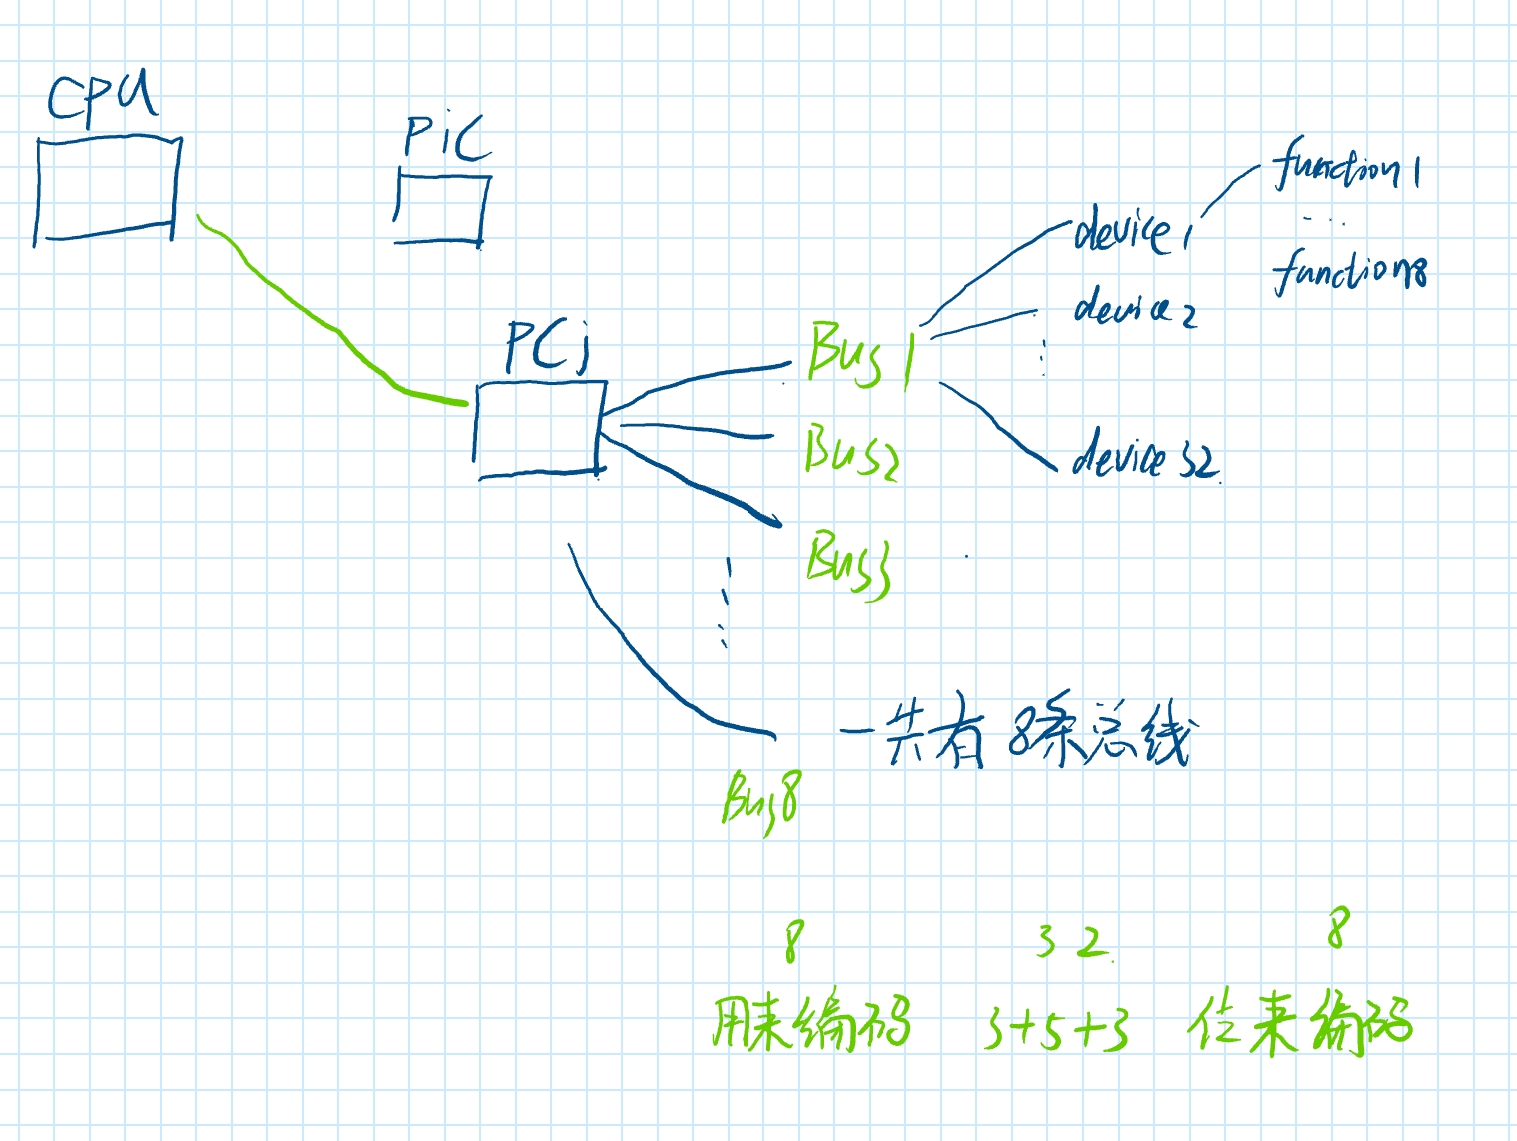 CPU
PiC
PCi
Bus 1
Bus2
Bus3
Bus8
device1
device2
device 32
function1
...
function8
一共有 8条总线
8 32 8
用来编码 3+5+3 位来编码